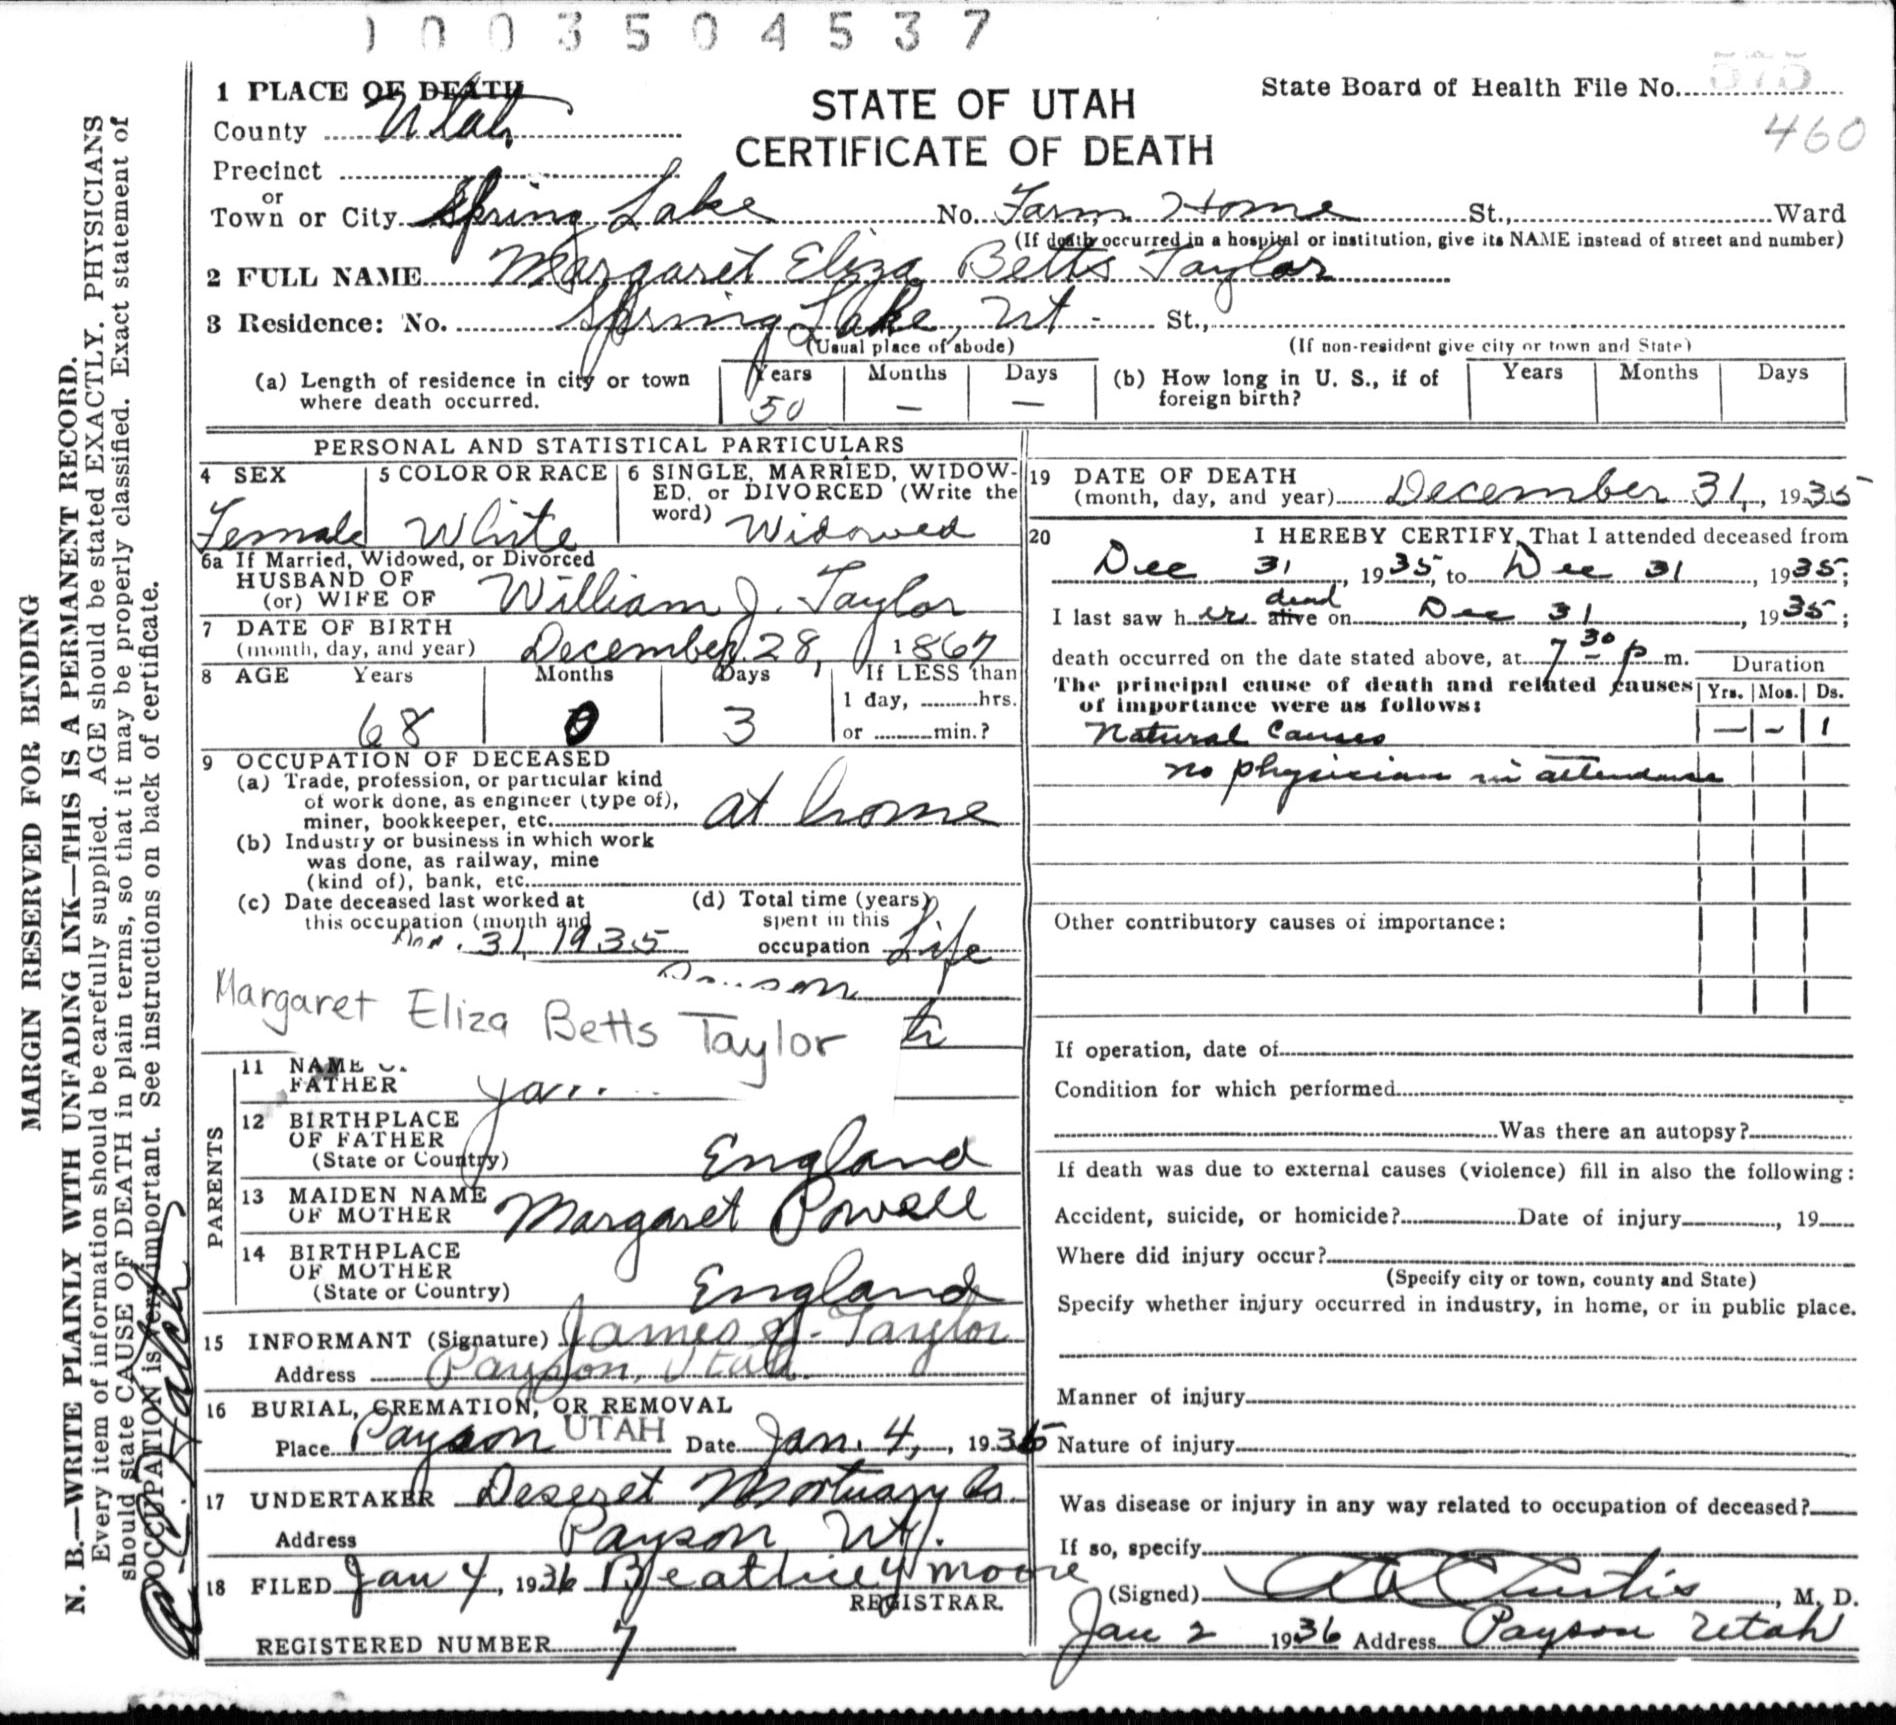 1003504537
1 PLACE OF DEATH
County Utah
Precinct
or
Town or City Spring Lake No. Farm Home St., Ward
(If death occurred in a hospital or institution, give its NAME instead of street and number)
STATE OF UTAH
CERTIFICATE OF DEATH
State Board of Health File No. 575
460
2 FULL NAME Margaret Eliza Betts Taylor
3 Residence: No. Spring Lake, Ut - St.,
(Usual place of abode) (If non-resident give city or town and State)
(a) Length of residence in city or town where death occurred. Years 50 Months — Days —
(b) How long in U. S., if of foreign birth? Years Months Days
PERSONAL AND STATISTICAL PARTICULARS
4 SEX Female
5 COLOR OR RACE White
6 SINGLE, MARRIED, WIDOW-
ED, or DIVORCED (Write the
word) Widowed
6a If Married, Widowed, or Divorced
HUSBAND OF
(or) WIFE OF William J. Taylor
7 DATE OF BIRTH
(month, day, and year) December 28, 1867
8 AGE Years Months Days If LESS than
1 day, hrs.
68 0 3 or min.?
9 OCCUPATION OF DECEASED
(a) Trade, profession, or particular kind
of work done, as engineer (type of),
miner, bookkeeper, etc. at home
(b) Industry or business in which work
was done, as railway, mine
(kind of), bank, etc.
(c) Date deceased last worked at
this occupation (month and
31, 1935
(d) Total time (years)
spent in this
occupation Life
Margaret Eliza Betts Taylor
11 NAME
FATHER
PARENTS
12 BIRTHPLACE
OF FATHER
(State or Country) England
13 MAIDEN NAME
OF MOTHER Margaret Powell
14 BIRTHPLACE
OF MOTHER
(State or Country) England
15 INFORMANT (Signature) James J. Taylor
Address Payson, Utah.
16 BURIAL, CREMATION, OR REMOVAL
Place Payson UTAH Date Jan. 4, , 1936
17 UNDERTAKER Deseret Mortuary Co.
Address Payson Ut.
18 FILED Jan 4, 1936 Beatrice Moore
REGISTRAR.
REGISTERED NUMBER 7
19 DATE OF DEATH
(month, day, and year) December 31, , 1935
20 I HEREBY CERTIFY, That I attended deceased from
Dec 31, 1935, to Dec 31, 1935;
I last saw her alive dead on Dec 31, 1935;
death occurred on the date stated above, at 7 30 p m.
The principal cause of death and related causes
of importance were as follows:
Duration
Yrs. Mos. Ds.
Natural Causes — - 1
no physician in attendance
Other contributory causes of importance:
If operation, date of
Condition for which performed
Was there an autopsy?
If death was due to external causes (violence) fill in also the following:
Accident, suicide, or homicide? Date of injury , 19
Where did injury occur?
(Specify city or town, county and State)
Specify whether injury occurred in industry, in home, or in public place.
Manner of injury
Nature of injury
Was disease or injury in any way related to occupation of deceased?
If so, specify
(Signed) A A Curtis, M. D.
Jan 2 1936 Address Payson Utah
MARGIN RESERVED FOR BINDING
N. B.—WRITE PLAINLY WITH UNFADING INK—THIS IS A PERMANENT RECORD.
Every item of information should be carefully supplied. AGE should be stated EXACTLY. PHYSICIANS
should state CAUSE OF DEATH in plain terms, so that it may be properly classified. Exact statement of
OCCUPATION is very important. See instructions on back of certificate.